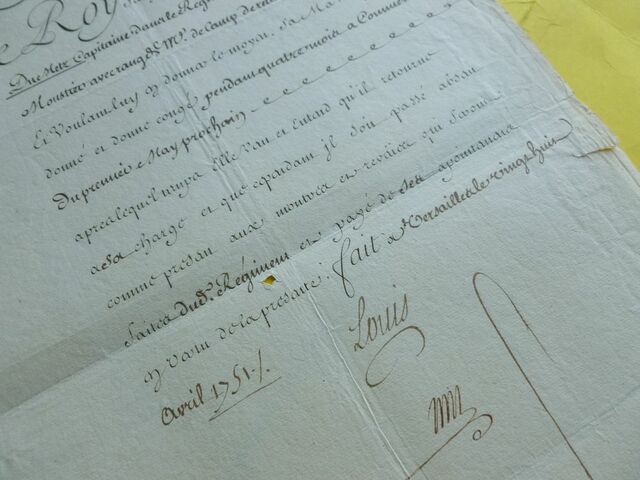 Le Roy
Du Metz Capitaine dans le Regi
Moustier avec rang de M.e de Camp de
Et Voulant luy y donner le moyen, Sa Ma
donné et donne congé pendant quatre mois a Commencer
Du premier May prochain
apres lequel temps Elle Veut et Entend qu'il retourne
a sa charge et que cependant il soit passé absent
comme present aux montres et reveües qui se feront
faites dud. Régiment et payé de ses apointemens
en vertu de la presente. fait a Versailles le vingt huit
Avril 1751./.
Louis